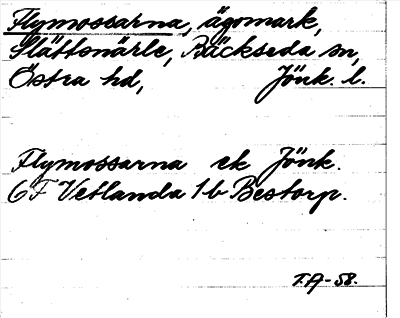 Flymossarna, ägomark,
Slättsnärle, Bäckseda sn,
Östra hd, Jönk. l.
Flymossarna ek Jönk.
6F Vetlanda 1b Bestorp.
T.A-58.